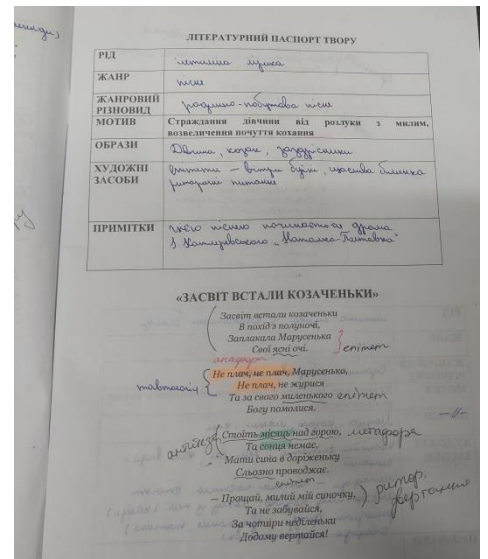 ЛІТЕРАТУРНИЙ ПАСПОРТ ТВОРУ
РІД
інтимна лірика
ЖАНР
пісня
ЖАНРОВИЙ РІЗНОВИД
родинно-побутова пісня
МОТИВ
Страждання дівчини від розлуки з милим,
возвеличення почуття кохання
ОБРАЗИ
Дівчина, козак,
ХУДОЖНІ ЗАСОБИ
епітети – вітри буйні, щаслива билинка
риторичні питання
ПРИМІТКИ
цією піснею починається драма
І. Котляревського „Наталка-Полтавка"
«ЗАСВІТ ВСТАЛИ КОЗАЧЕНЬКИ»
Засвіт встали козаченьки
В похід з полуночі,
Заплакала Марусенька
Свої ясні очі. епітет
анафора
Не плач, не плач, Марусенько,
тавтологія Не плач, не журися
Та за свого миленького епітет
Богу помолися.
—//—
антитеза Стоїть місяць над горою, метафора
Та сонця немає,
Мати сина в доріженьку
Сльозно проводжає.
епітет
– Прощай, милий мій синочку, ритор.
Та не забувайся, звертання
За чотири неділеньки
Додому вертайся!